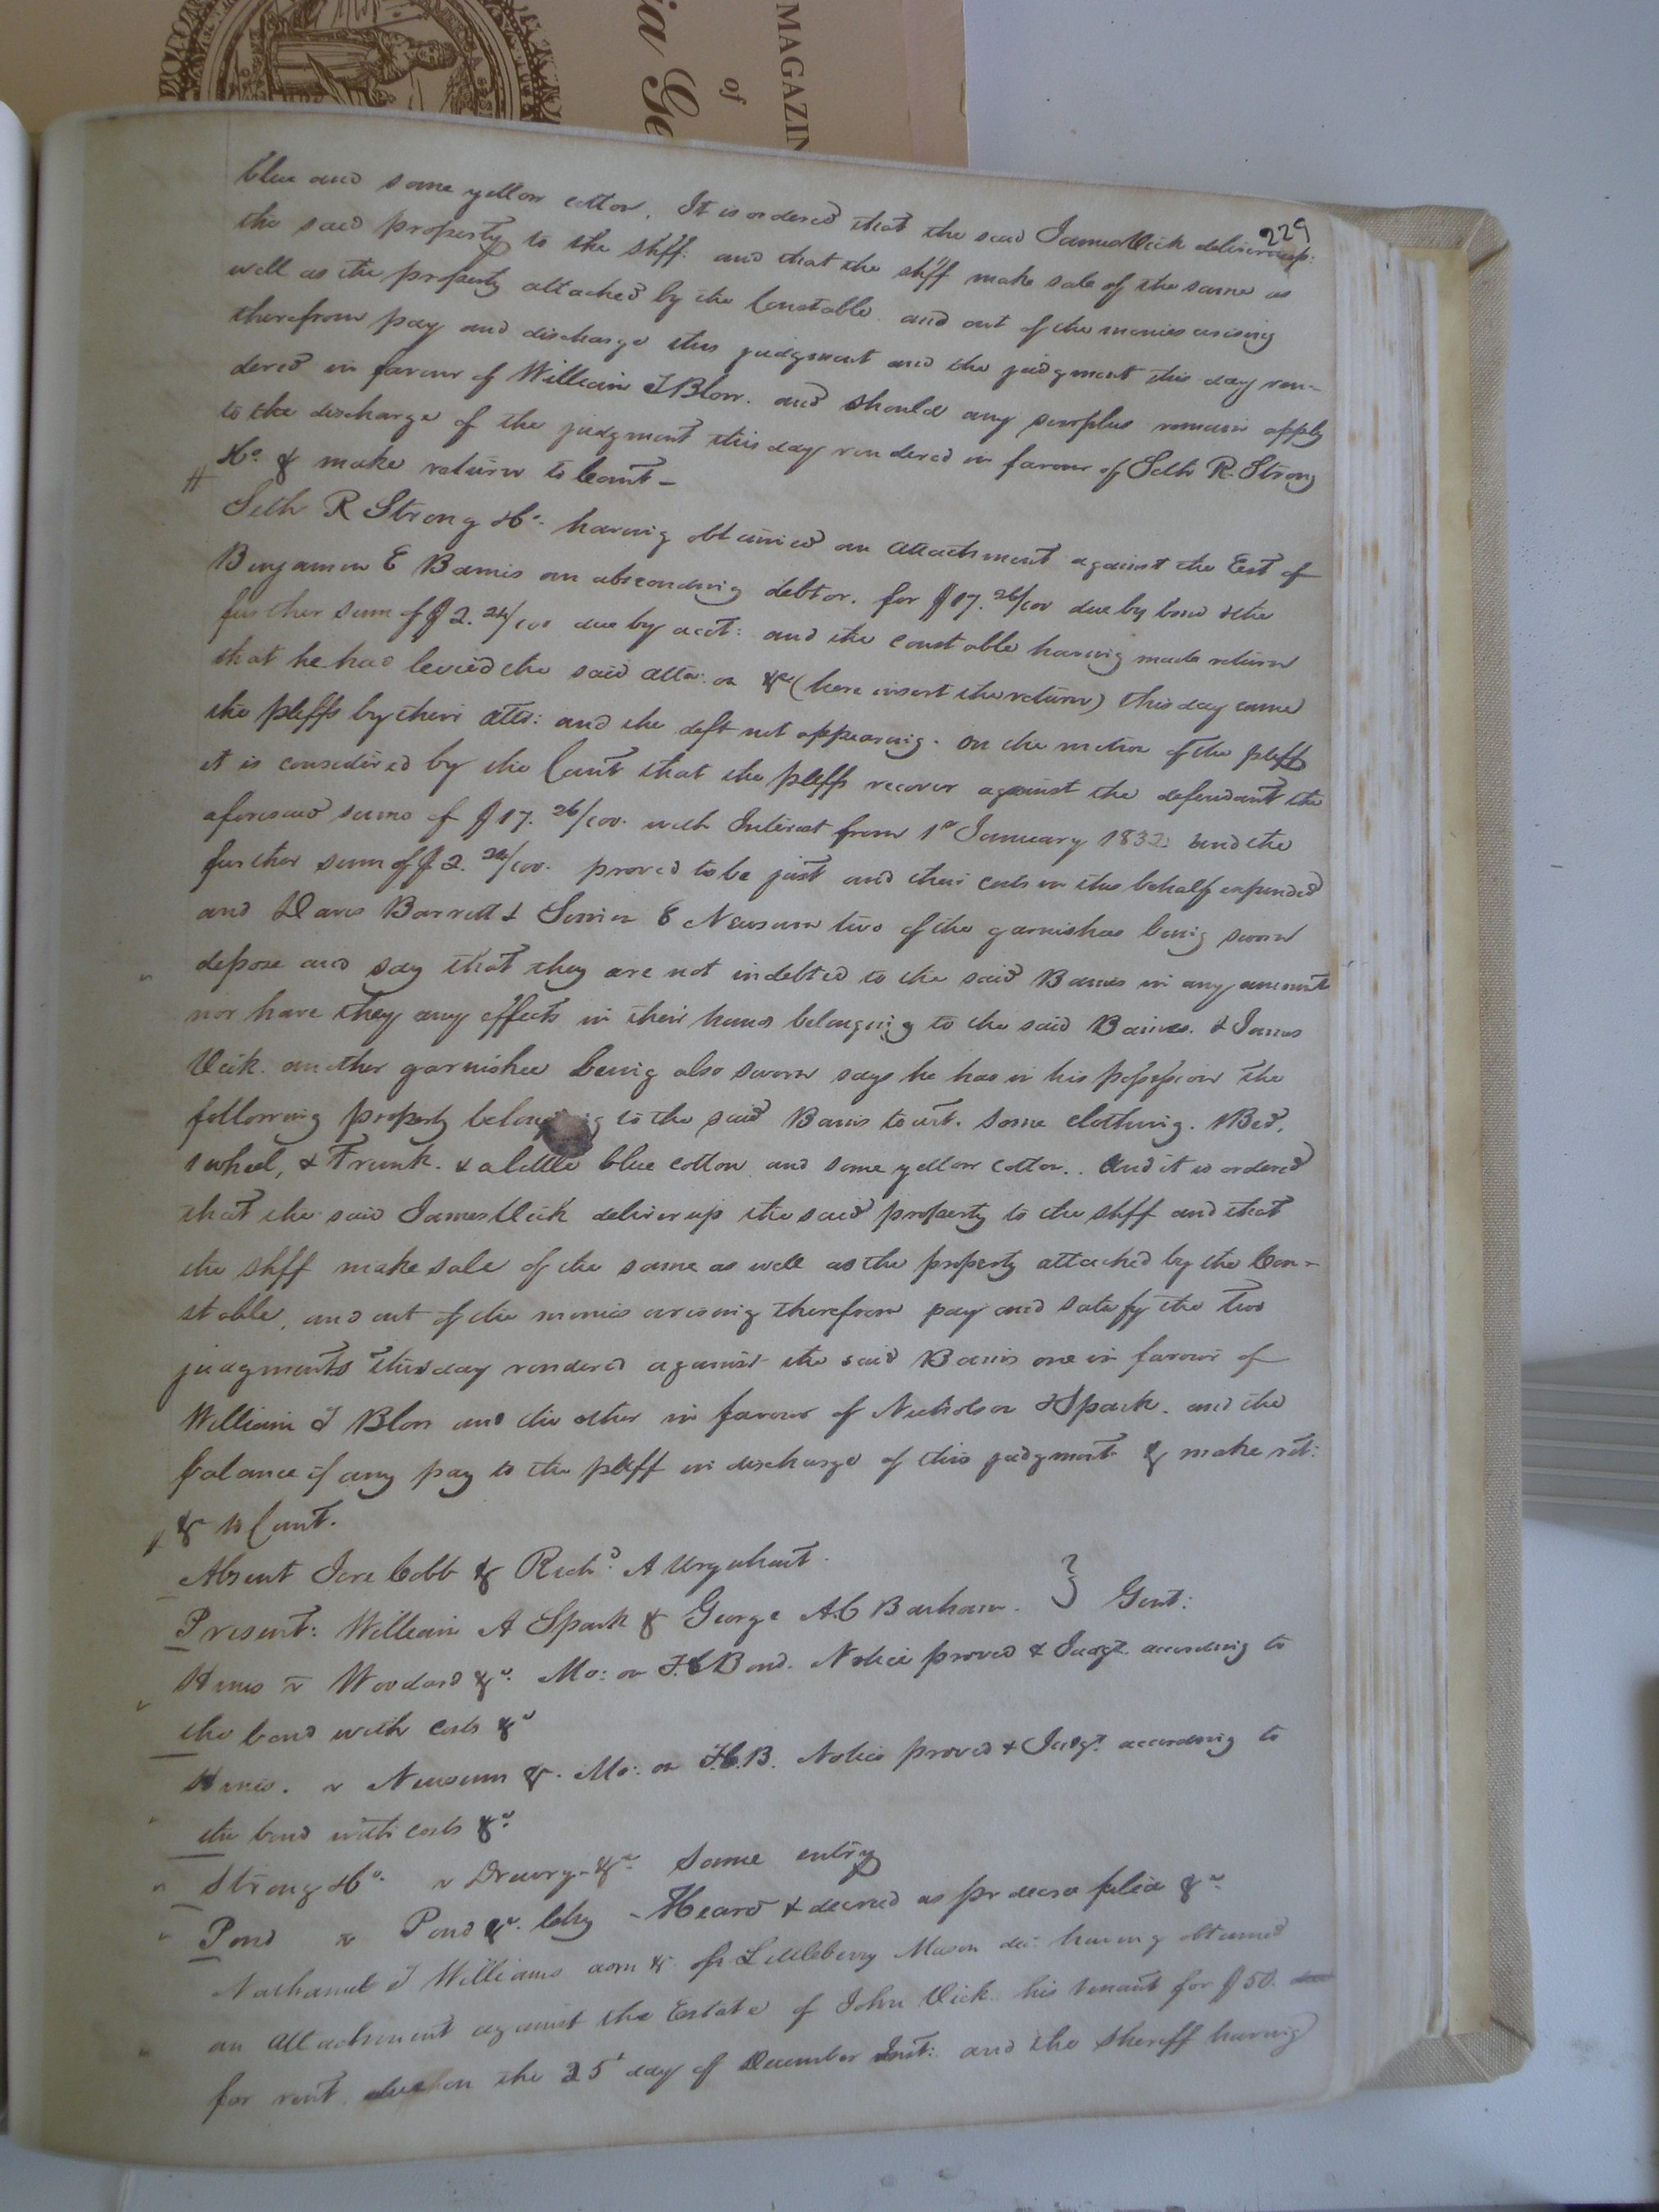 MAGAZIN
of
ia Ge
229
blue and some yellow cotton. It is ordered that the said James Vick deliver up
the said property to the shff: and that the shff make sale of the same as
well as the property attached by the Constable and out of the monies arising
therefrom pay and discharge this judgment and the judgment this day ren-
dered in favour of William J Blow. and should any surplus remain apply
to the discharge of the judgment this day rendered in favour of Seth R. Strong
& Co. & make return to Court -
Seth R Strong & Co. having obtained an attachment against the Est of
Benjamin E Barnes an absconding debtor. for $17. 26/100 due by bond & the
further sum of $2. 24/100 due by acct: and the constable having made return
that he had levied the said atta: on &c (here insert the return) this day came
the pltffs by their atto: and the deft not appearing. on the motion of the pltff
it is considered by the Court that the pltffs recover against the defendant the
aforesaid sums of $17. 26/100. with Interest from 1st January 1832 and the
further sum of $2. 24/100. proved to be just and their costs in this behalf expended
and Davis Barrett & E Newsum two of the garnishees being sworn
depose and say that they are not indebted to the said Barnes in any amount
nor have they any effects in their hands belonging to the said Barnes. & James
Vick another garnishee being also sworn says he has in his possession the
following property belonging to the said Barnes to wit. some clothing. 1 Bed.
1 wheel, & Trunk. & a little blue cotton and some yellow cotton.. And it is ordered
that the said James Vick deliver up the said property to the shff and that
the shff make sale of the same as well as the property attached by the Con-
stable, and out of the monies arising therefrom pay and satisfy the two
judgments this day rendered against the said Barnes one in favour of
William J Blow and the other in favour of Nicholson & Spark. and the
balance if any pay to the pltff in discharge of this judgment & make ret:
& to Court.
Absent Jere Cobb & Richd. A Urquhart.
Present: William A Spark & George A.C Barham. } Gent:
Hines v Woodard &c. Mo: on F.C Bond. Notice proved & Judgt. according to
the bond with costs &c
Hines. v Newsum &c. Mo: on F.C.B. Notice proved & Judgt. according to
the bond with costs &c.
Strong & Co. v Drewry &c same entry
Pond v Pond &c. Chy - Heard & decreed as pr decree filed &c
Nathaniel J Williams adm &c of Littleberry Mason dec: having obtained
an attachment against the Estate of John Vick his tenant for $50.
for rent due on the 25t day of December Inst: and the Sheriff having